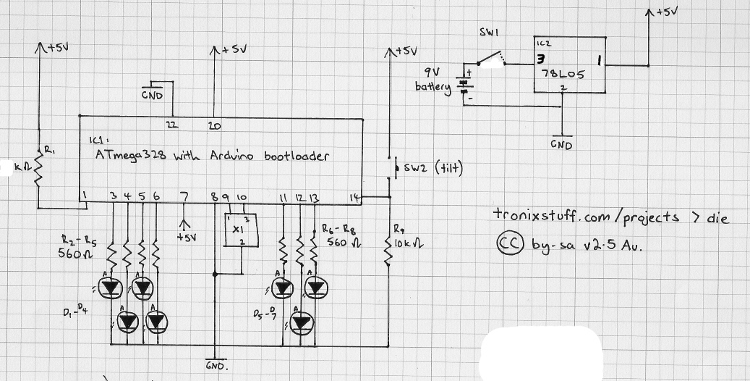 +5V
+5V
+5V
+5V
SW1
IC2
3
1
78L05
2
9V
battery
+
-
GND
GND
22
20
R1
kΩ
IC1:
ATmega328 with Arduino bootloader
SW2 (tilt)
1 3 4 5 6 7 8 9 10 11 12 13 14
+5V
1 3
X1
2
R2-R5
560Ω
R6-R8
560Ω
R9
10kΩ
A A A A
D1-D4
A A A
D5-D7
GND.
tronixstuff.com/projects > die
CC by-sa v2.5 Au.